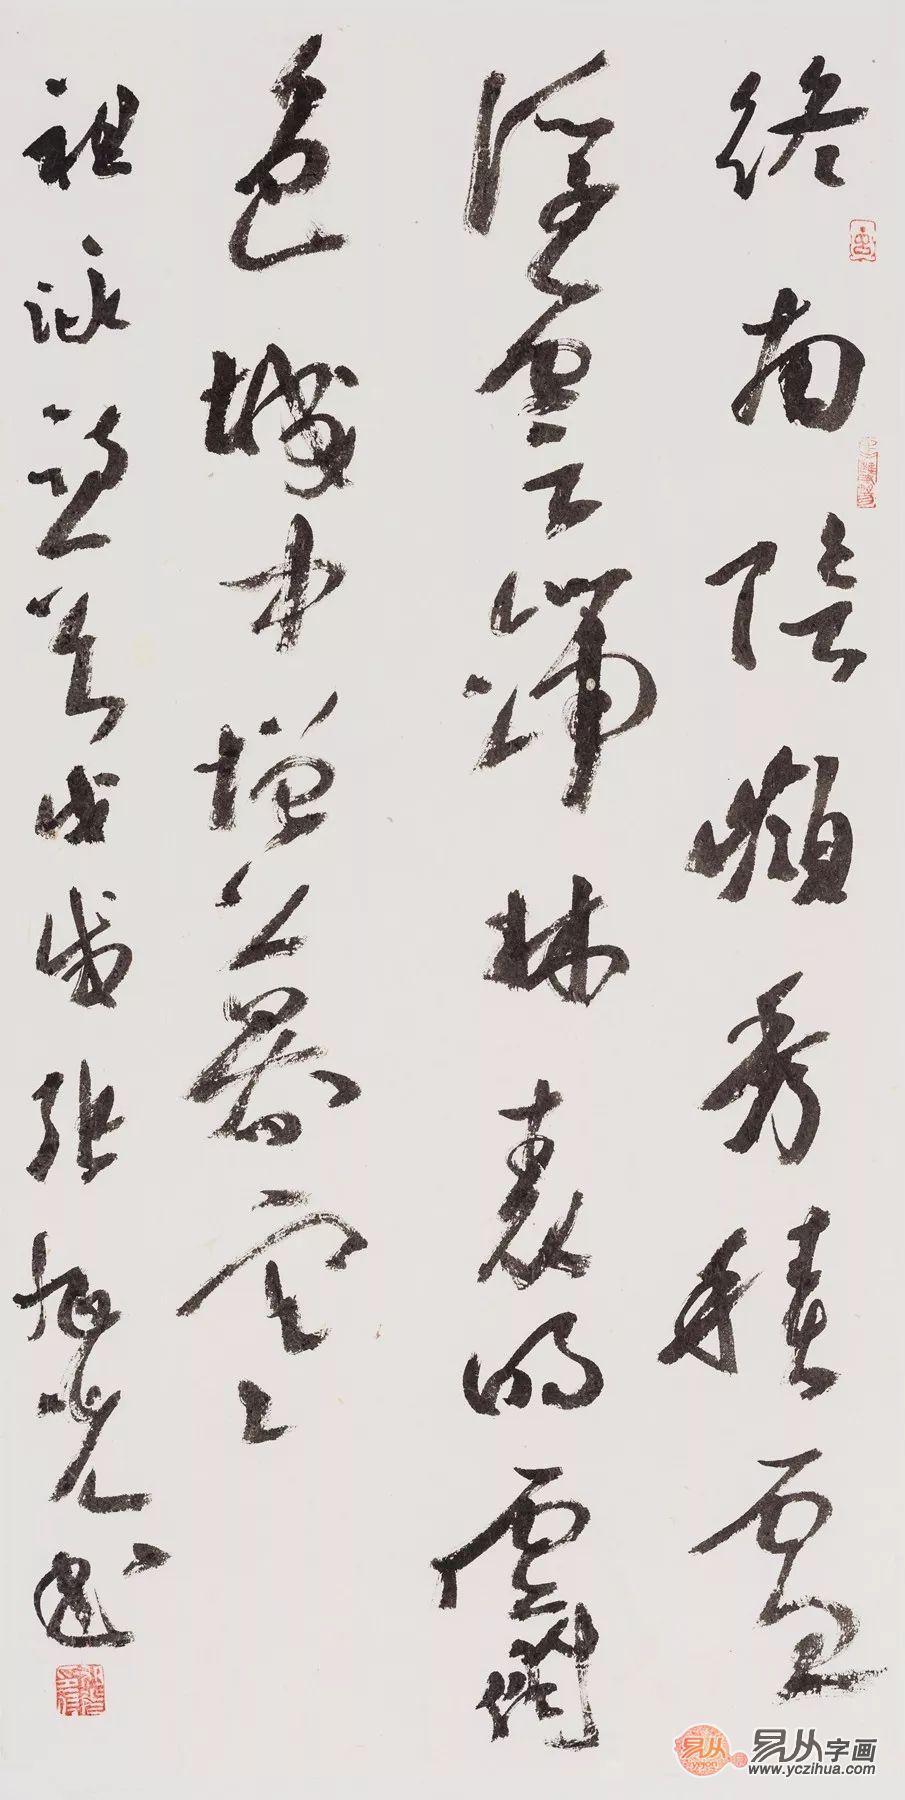 終南陰嶺秀積雪
浮雲端林表明霽
色城中增暮寒
祖詠詩一首戊戌張旭光書
易从
易从字画
www.yczihua.com